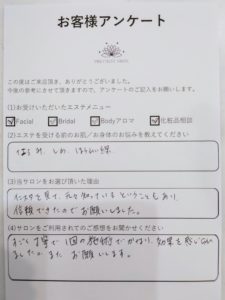 お客様アンケート
この度はご来店頂き、ありがとうございました。
今後の参考にさせて頂きますので、アンケートのご記入をお願いします。
(1)お受けいただいたエステメニュー
Facial Bridal Bodyアロマ 化粧品相談
(2)エステを受ける前のお肌／お身体のお悩みを教えてください
しみ、ほうれい線
(3)当サロンをお選び頂いた理由
インスタを見て、元々知っているということもあり、
信頼できたのでお願いしました。
(4)サロンをご利用されてのご感想をお聞かせください
すごく丁寧で1回の施術でかなり効果を感じられ
ました。また お願いします。